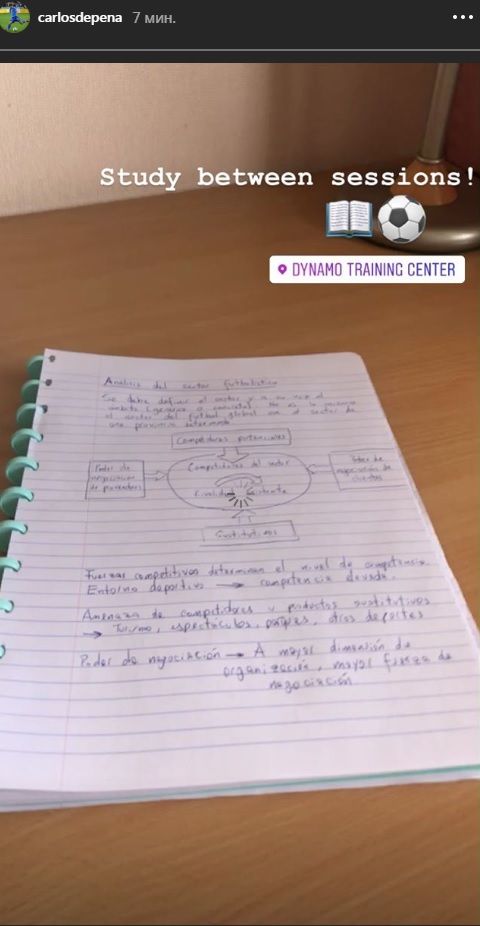 carlosdepena 7 мин.
Study between sessions!
DYNAMO TRAINING CENTER
Análisis del sector futbolístico
Se debe definir el sector y a su vez el
el sector del futbol global que el sector de
una provincia determinada
Competidores potenciales
Poder de
negociación
de proveedores
Competidores del sector
Rivalidad existente
Poder de
negociación de
clientes
Sustitutivos
Fuerzas competitivas determinan el nivel de competencia.
Entorno deportivo → competencia elevada.
Amenaza de competidores y productos sustitutivos
→ Turismo, espectáculos, parques, otros deportes
Poder de negociación → A mayor dimensión de
organización, mayor fuerza de
negociación